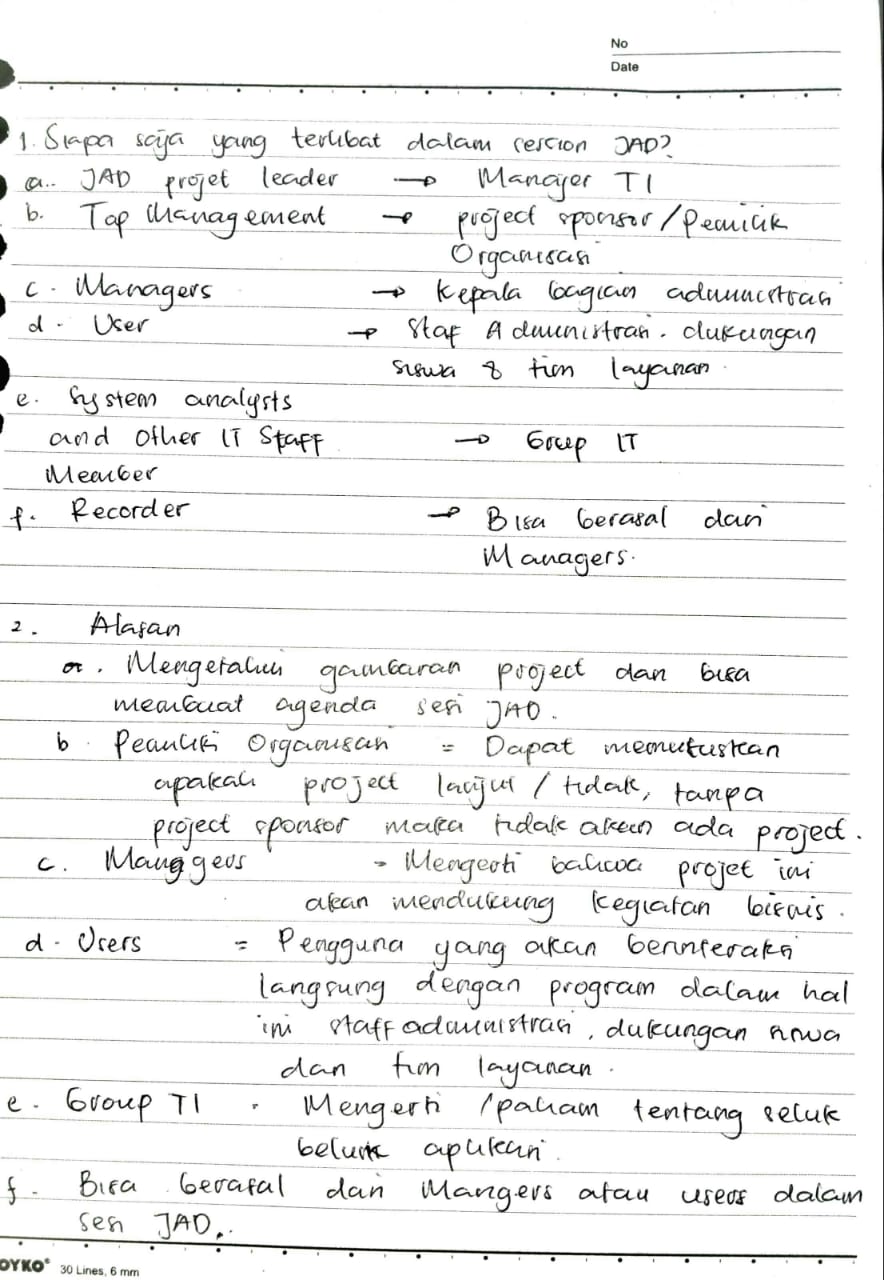 No
Date
1. Siapa saja yang terlibat dalam session JAD?
a.. JAD projet leader → Manajer TI
b. Top Management → project sponsor / Pemilik
Organisasi
c. Managers → Kepala bagian administrasi
d. User → Staf Administrasi. dukungan
siswa & tim layanan.
e. System analysts
and other IT Staff → Group IT
Member
f. Recorder → Bisa berasal dari
Managers.
2. Alasan
a. Mengetahui gambaran project dan bisa
membuat agenda sesi JAD.
b. Pemiliki Organisasi = Dapat memutuskan
apakah project lanjut / tidak, tanpa
project sponsor maka tidak akan ada project.
c. Managers = Mengerti bahwa projet ini
akan mendukung kegiatan bisnis.
d. Users = Pengguna yang akan berinteraksi
langsung dengan program dalam hal
ini staff administrasi, dukungan siswa
dan tim layanan.
e. Group TI = Mengerti / paham tentang seluk
beluk aplikasi.
f. Bisa berasal dari Mangers atau users dalam
sesi JAD..
OYKO® 30 Lines, 6 mm